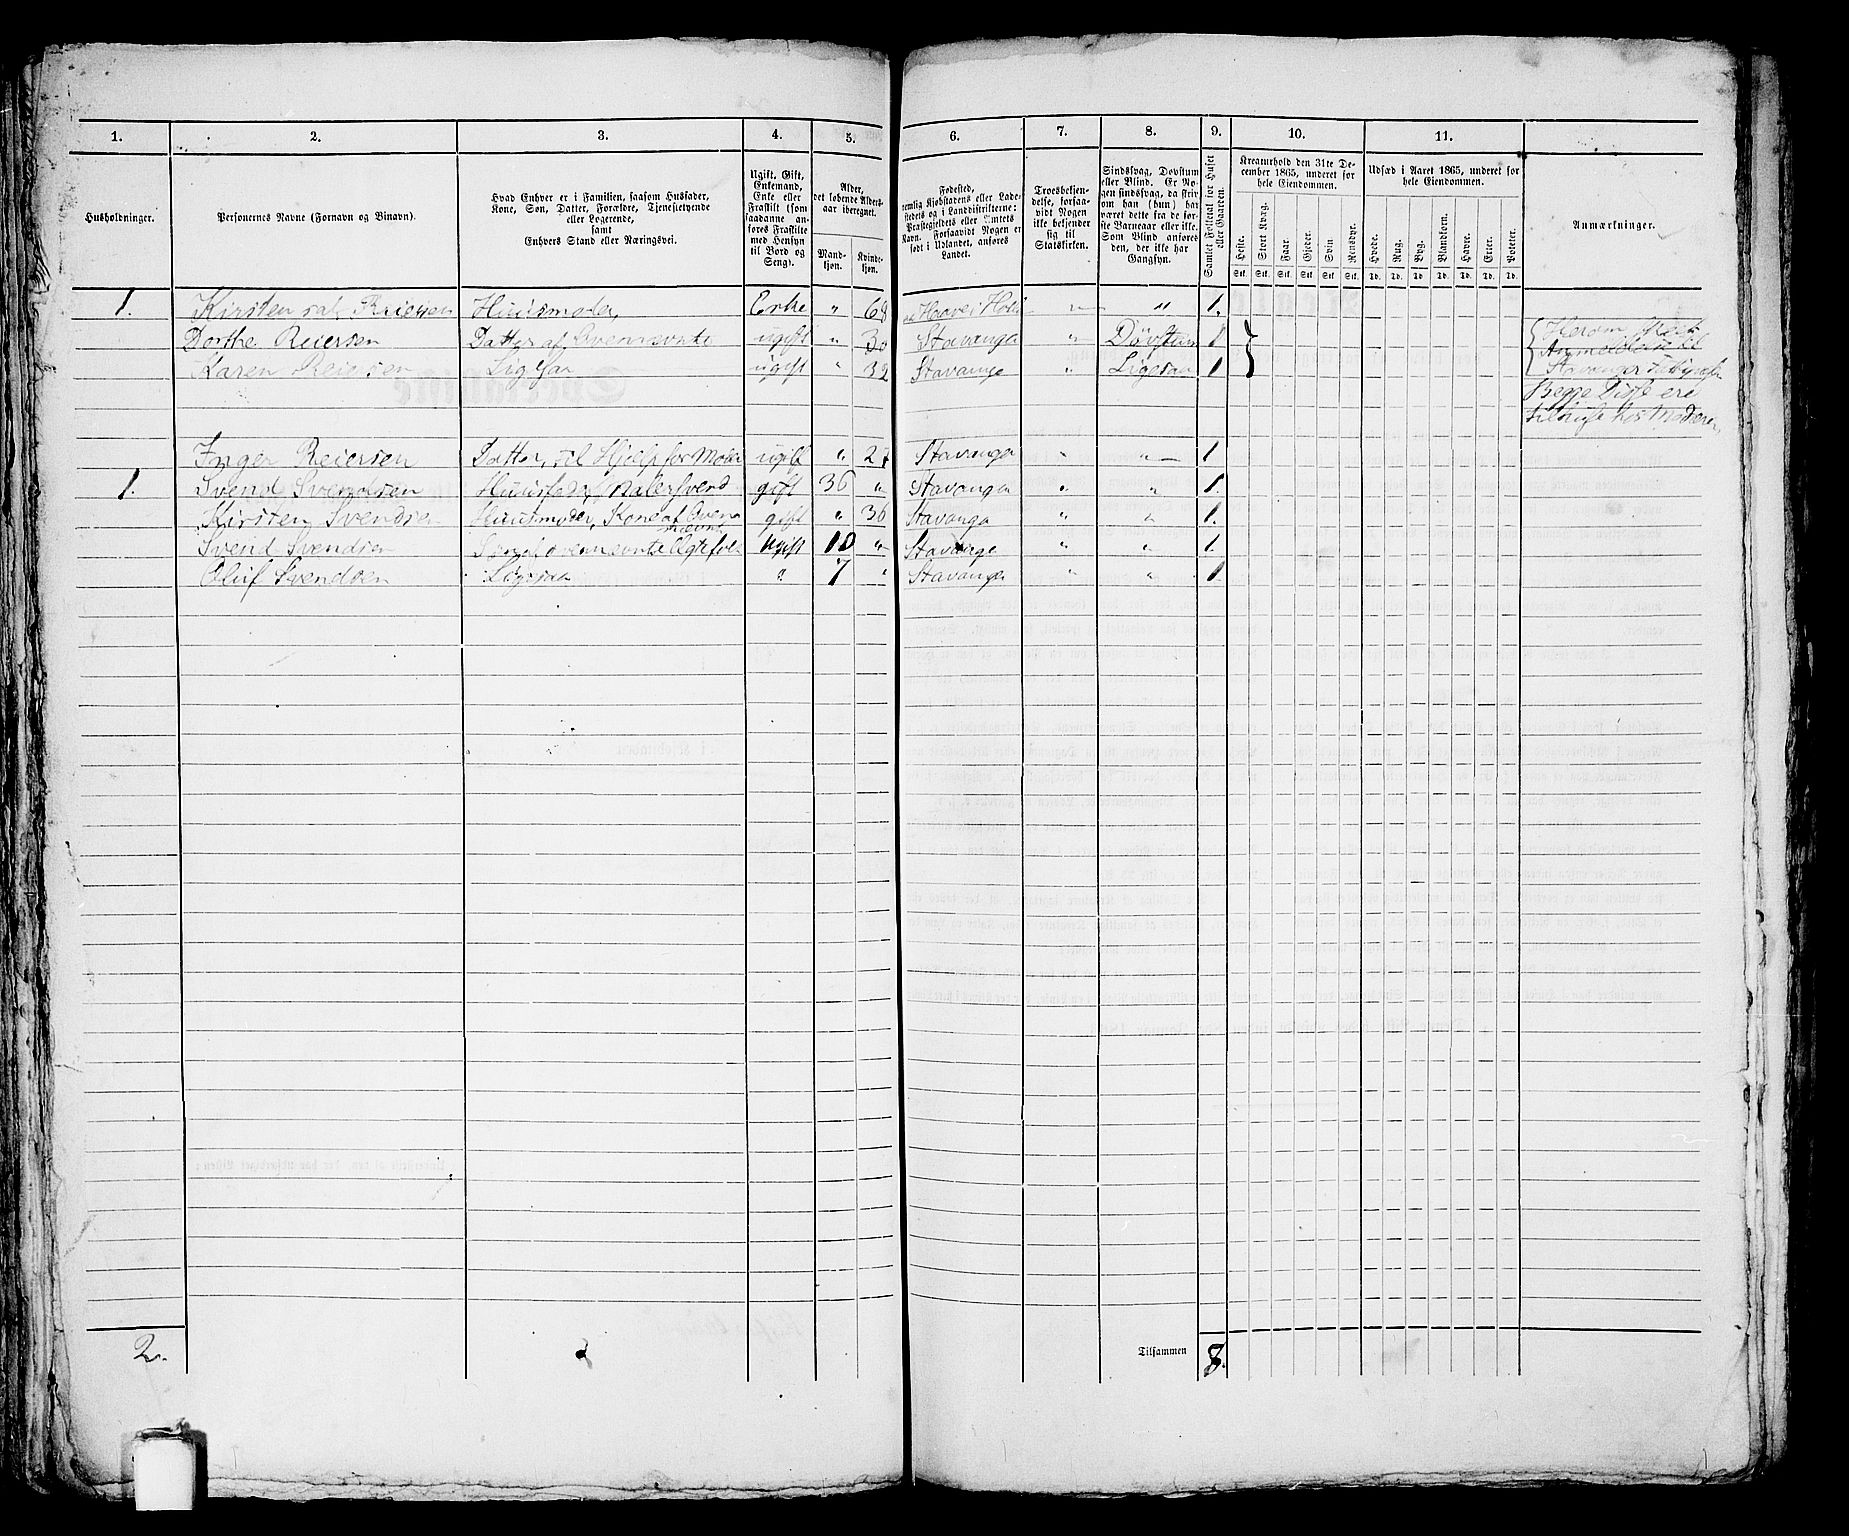 1. 2. 3. 4. 5. 6. 7. 8. 9. 10. 11.
Husholdninger.
Personernes Navne (Fornavn og Binavn).
Hvad Enhver er i Familien, saasom Husfader,
Kone, Søn, Datter, Forældre, Tjenestetyende
eller Logerende,
samt
Enhvers Stand eller Næringsvei.
Ugift, Gift,
Enkemand,
Enke eller
Fraskilt (som
saadanne an-
føres Fraskilte
med Hensyn
til Bord og
Seng).
Alder,
det løbende Alders-
aar iberegnet.
Mand-
kjøn.
Kvinde-
kjøn.
Fødested,
nemlig Kjøbstadens eller Lade-
stedets og i Landdistrikterne:
Præstegjeldets eller Amtets
Navn. Forsaavidt Nogen er
født i Udlandet, anføres
Landet.
Troesbekjen-
delse, forsaa-
vidt Nogen
ikke bekjender
sig til
Statskirken.
Sindssvag, Døvstum
eller Blind. Er No-
gen sindssvag, da skriv
om han (hun) har
været dette fra de før-
ste Barneaar eller ikke.
Som Blind anføres
den, der ikke har
Gangsyn.
Samlet Folketal for Huset
eller Gaarden.
Kreaturhold den 31te De-
cember 1865, underet for
hele Eiendommen.
Heste. Stort Kvæg. Faar. Gjeder. Svin. Rensdyr.
Stk. Stk. Stk. Stk. Stk. Stk.
Udsæd i Aaret 1865, underet for
hele Eiendommen.
Hvede. Rug. Byg. Blandkorn. Havre. Erter. Poteter.
Td. Td. Td. Td. Td. Td. Td.
Anmærkninger.
1. Kirsten sal Reiersen Huusmoder, Enke " 68 " 1.
Dorthe Reiersen Datter af Ovennævnte ugift " 30 Stavanger " Døvstum 1
Karen Reiersen Ligesaa ugift " 32 Stavanger " Ligesaa 1
Anmeldelse til
Stavanger
Begge Disse ere
tilhuse hos Moderen,
Inger Reiersen Datter, til Hjelp for Moder ugift " 27 Stavanger " " 1
1. Svend Svendsen Huusfader, Malersvend gift 36 " Stavanger " " 1.
Kirsten Svendsen Huusmoder, Kone af Oven
nævnte gift " 36 Stavanger " " 1.
Svend Svendsen Søn af ovennævnte Egtefolk Ugift 10 " Stavanger " " 1.
Oluf Svendsen Ligesaa " 7 " Stavanger " " 1.
2.
Tilsammen 8.